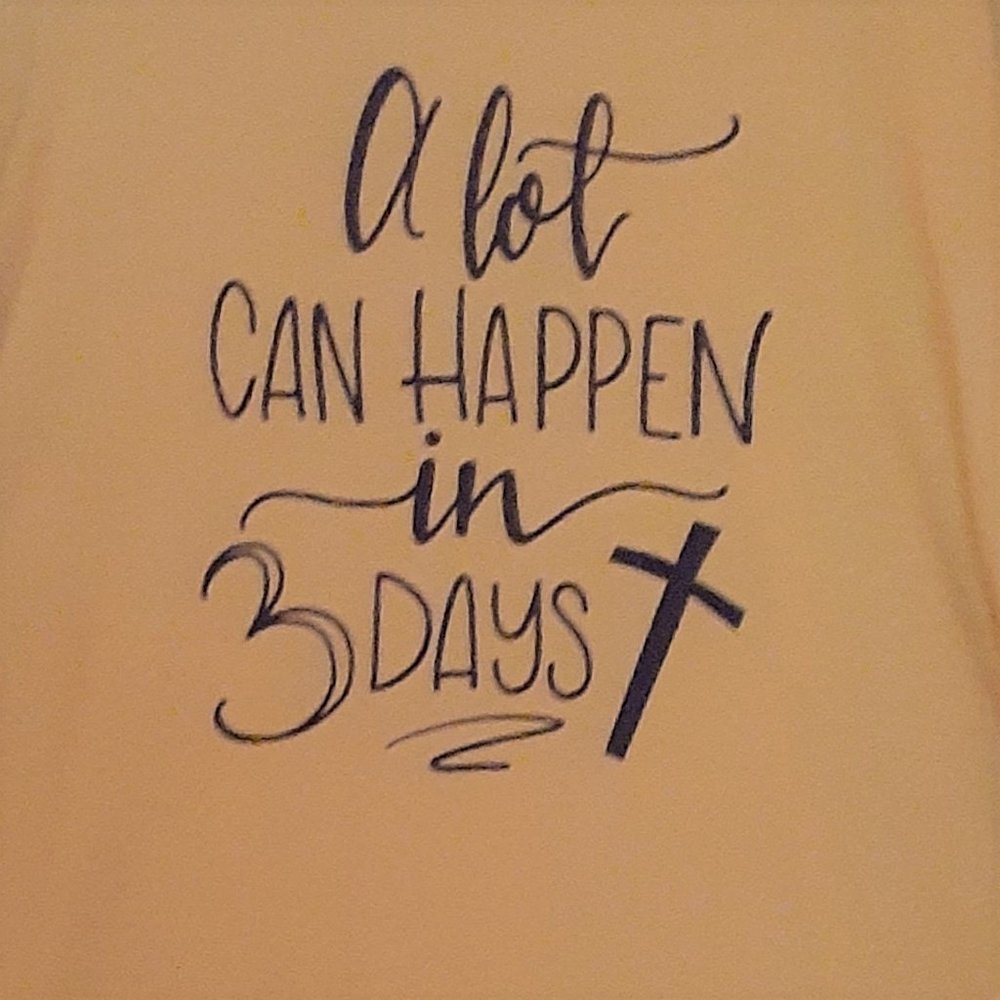 A lot
CAN HAPPEN
in
3 DAYS